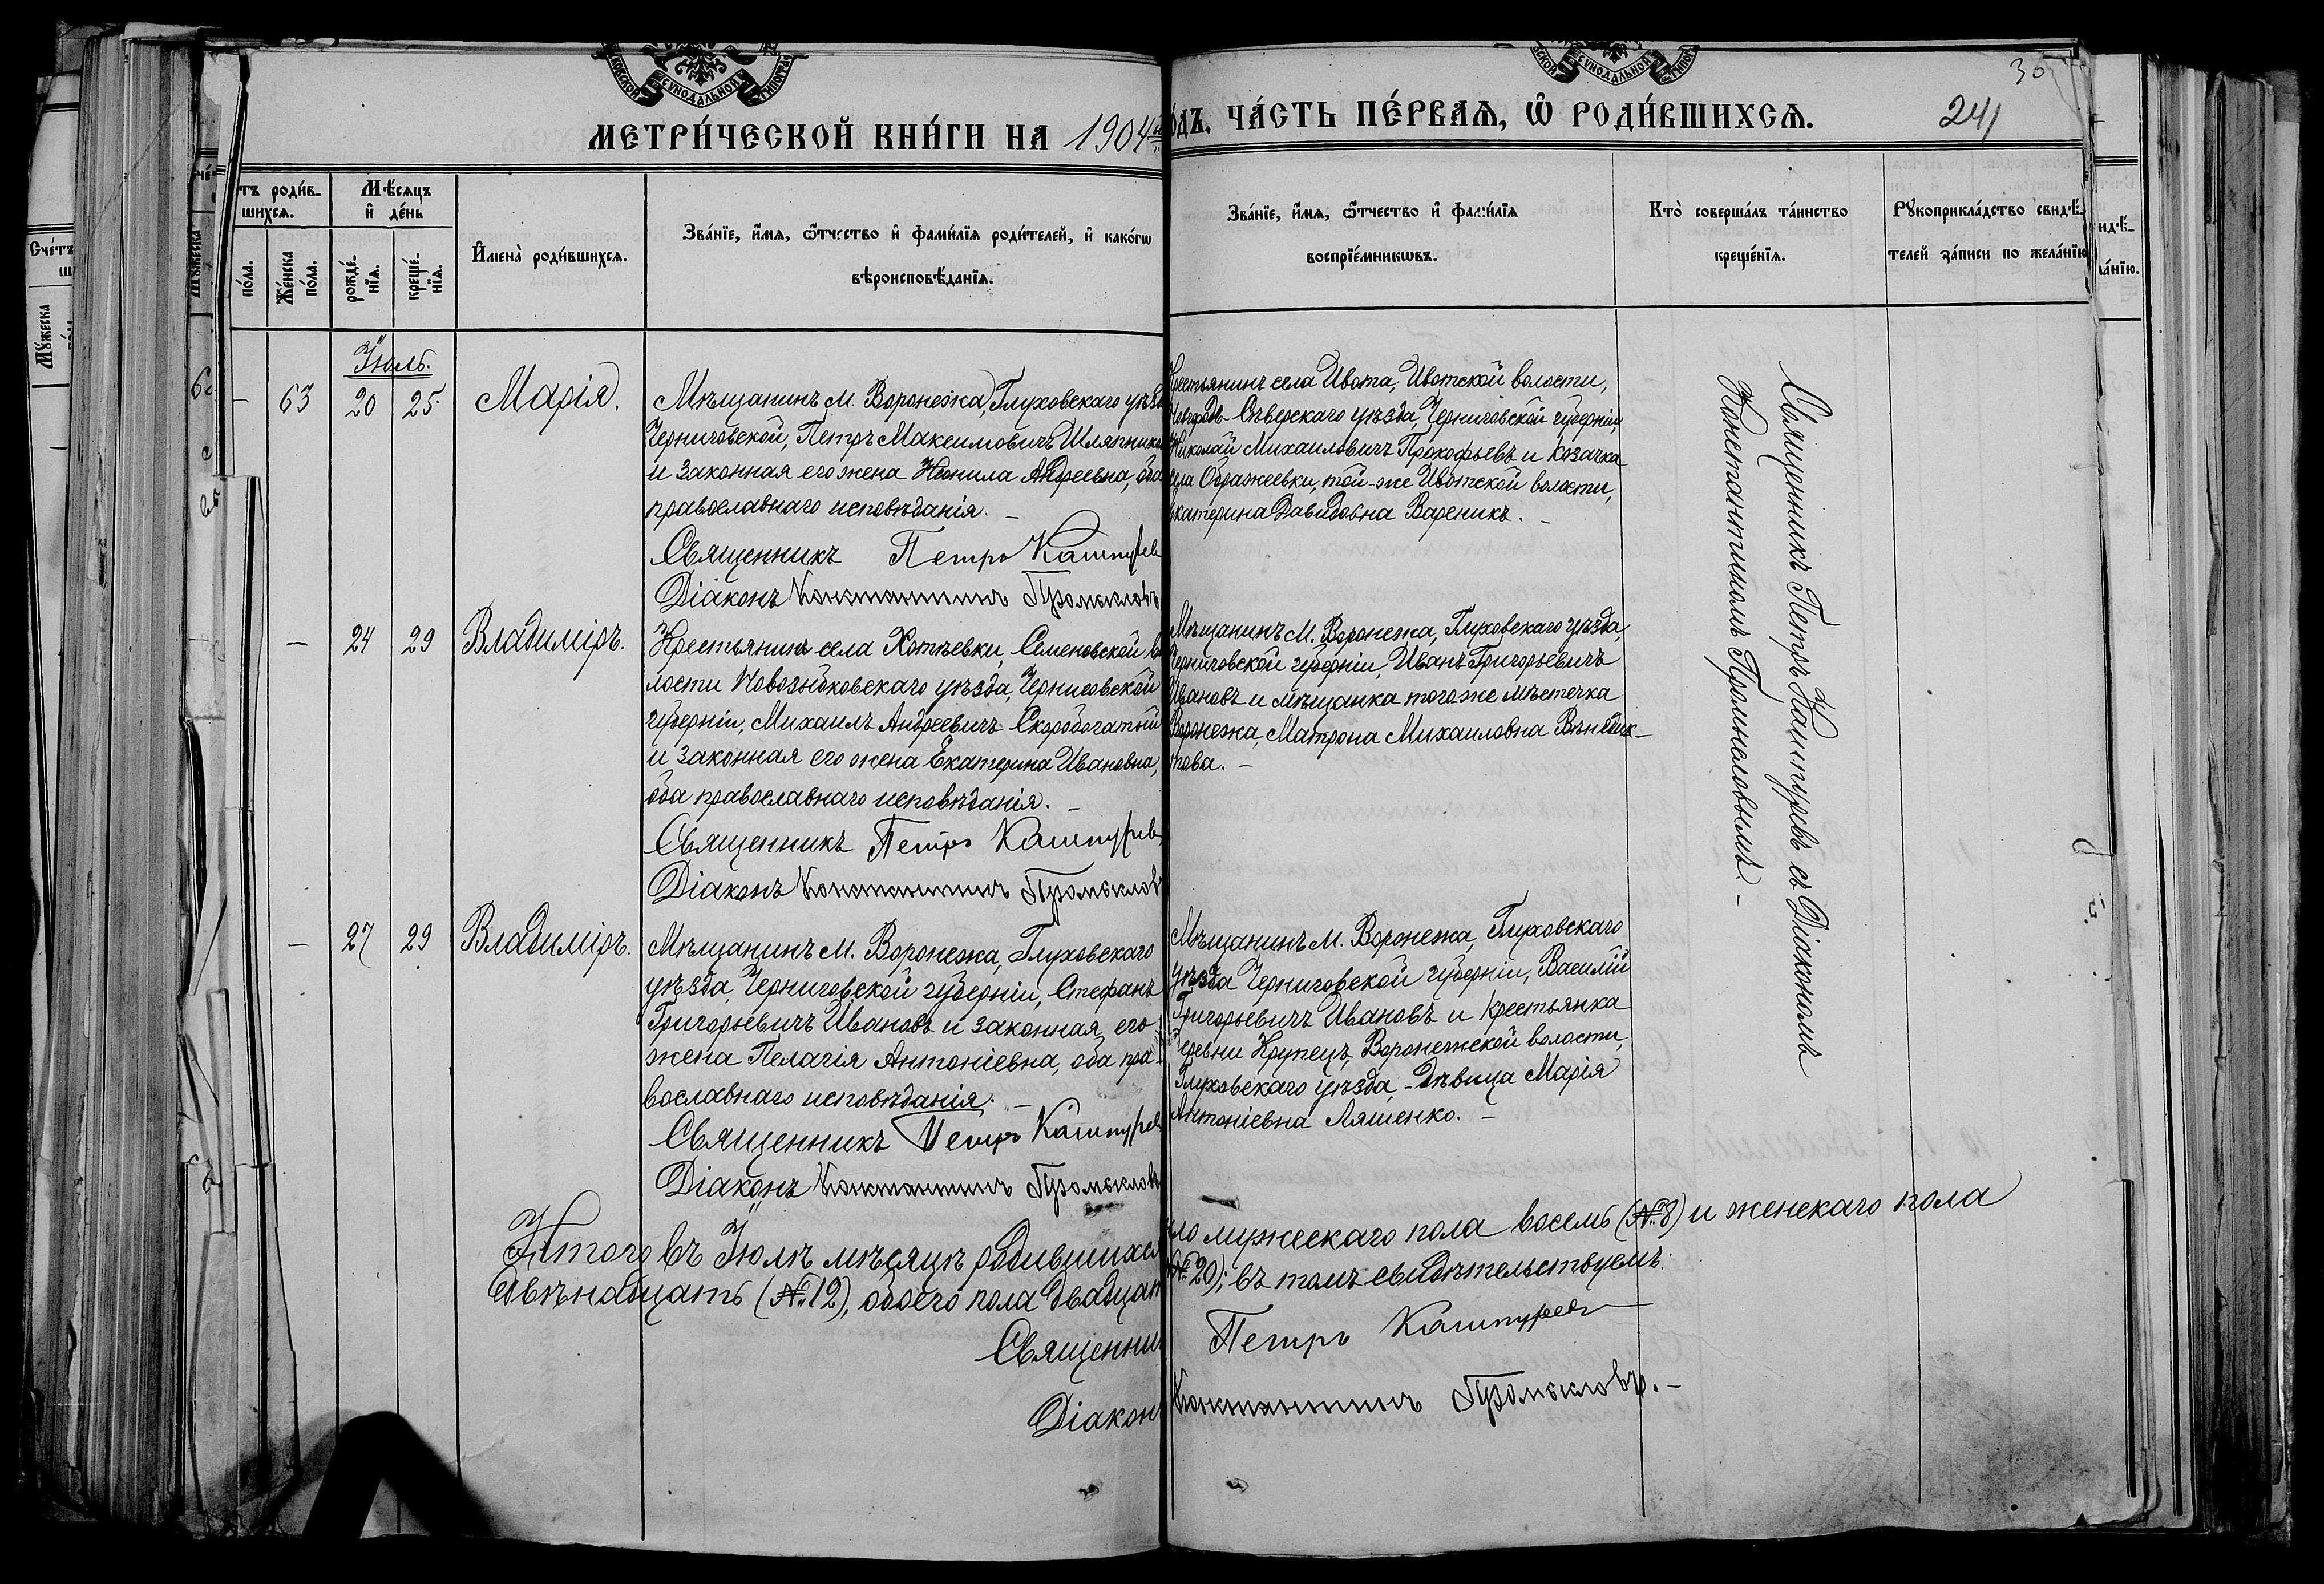 МЕТРИ́ЧЕСКОЙ КНИ́ГИ НА 1904
ЧА́СТЬ ПЕ́РВАѦ, Ѿ РОДИ́ВШИХСѦ.
30
241
СѴНОДАЛЬНОЙ
СѴНОДАЛЬНОЙ
тъ роди́в-
шихсѧ.
Мѣ́сѧцъ
и҆ де́нь
пола.
Же́нска
пола.
рожде́-
нїѧ.
креще́-
нїѧ.
И҆мена̀ роди́вшихсѧ.
Зва́нїе, и҆́мѧ, ѻ҆́тчество и҆ фами́лїѧ роди́телей, и҆ како́гѡ
вѣроисповѣ́данїѧ.
Зва́нїе, и҆́мѧ, ѻ҆́тчество и҆ фами́лїѧ
воспрїе́мникѡвъ.
Кто̀ соверша́лъ та́инство
креще́нїѧ.
Рꙋкоприкла́дство свидѣ́-
телей за́писи по жела́нїю
Счéтъ
Мꙋ́жеска
Іюль.
— 63 20 25. Марія.
Мѣщанинъ м. Воронежа, Глуховскаго уѣзда
Черниговской, Петръ Максимовичъ Шляпнико
и законная его жена Неонила Андреевна, оба
православнаго исповѣданія. —
Священникъ Петръ Кашпуревъ
Діаконъ Константинъ Промысловъ
Крестьянинъ села Ивота, Ивотской волости,
Новгород-Сѣверскаго уѣзда, Черниговской губерніи,
Николай Михаиловичъ Прокофьевъ и козачка
села Ображеевки, той-же Ивотской волости,
Екатерина Давидовна Вареникъ. —
— 24 29 Владиміръ.
Крестьянинъ села Хотѣевки, Семеновской во
лости Новозыбковскаго уѣзда, Черниговской
губерніи, Михаилъ Андреевичъ Скоробогатый
и законная его жена Екатерина Ивановна,
оба православнаго исповѣданія. —
Священникъ Петръ Кашпуревъ
Діаконъ Константинъ Промысловъ
Мѣщанинъ м. Воронежа, Глуховскаго уѣзда,
Черниговской губерніи, Иванъ Григорьевичъ
Ивановъ и мѣщанка того же мѣстечка
Воронежа, Матрона Михаиловна Венедик-
това. —
— 27 29 Владиміръ.
Мѣщанинъ м. Воронежа, Глуховскаго
уѣзда, Черниговской губерніи, Стефанъ
Григорьевичъ Ивановъ и законная его
жена Пелагія Антоніевна, оба пра-
вославнаго исповѣданія. —
Священникъ Петръ Кашпуревъ
Діаконъ Константинъ Промысловъ
Мѣщанинъ м. Воронежа, Глуховскаго
уѣзда Черниговской губерніи, Василій
Григорьевичъ Ивановъ и крестьянка
деревни Крупецъ, Воронежской волости,
Глуховскаго уѣзда, дѣвица Марія
Антоніевна Ляшенко. —
Священникъ Петръ Кашпуревъ съ Діакономъ
Константиномъ Промысловымъ. —
Итого въ Іюлѣ мѣсяцѣ родившихся ло мужескаго пола восемь (№ 8) и женскаго пола
двѣнадцать (№ 12), обоего пола двадцат (№ 20); въ томъ свидѣтельствуемъ:
Священни Петръ Кашпуревъ
Діакон Константинъ Промысловъ. —